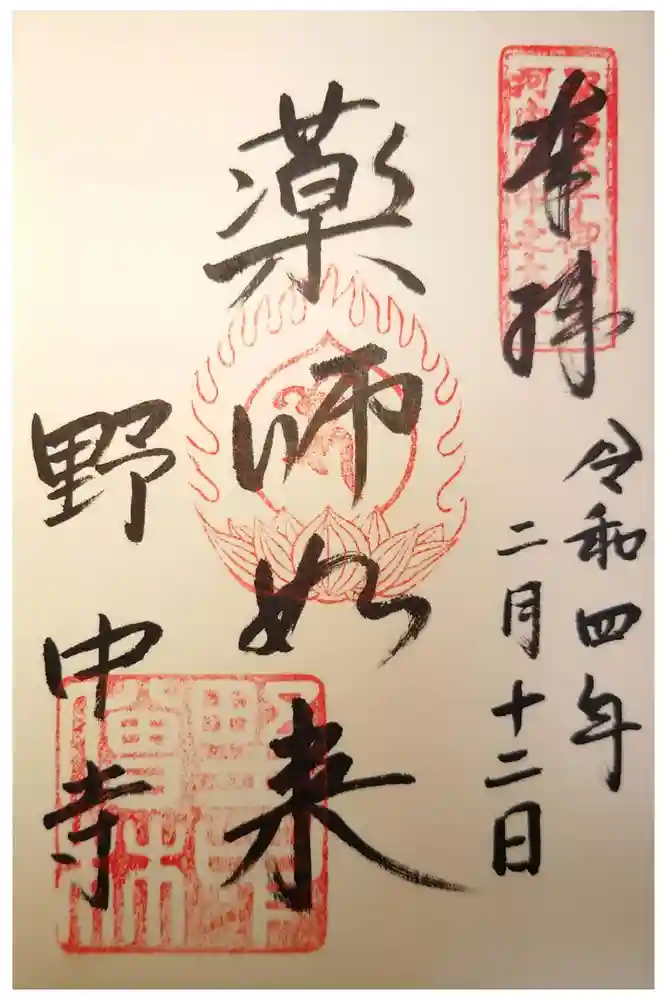 奉拝
令和四年
二月十二日
薬師如来
野中寺